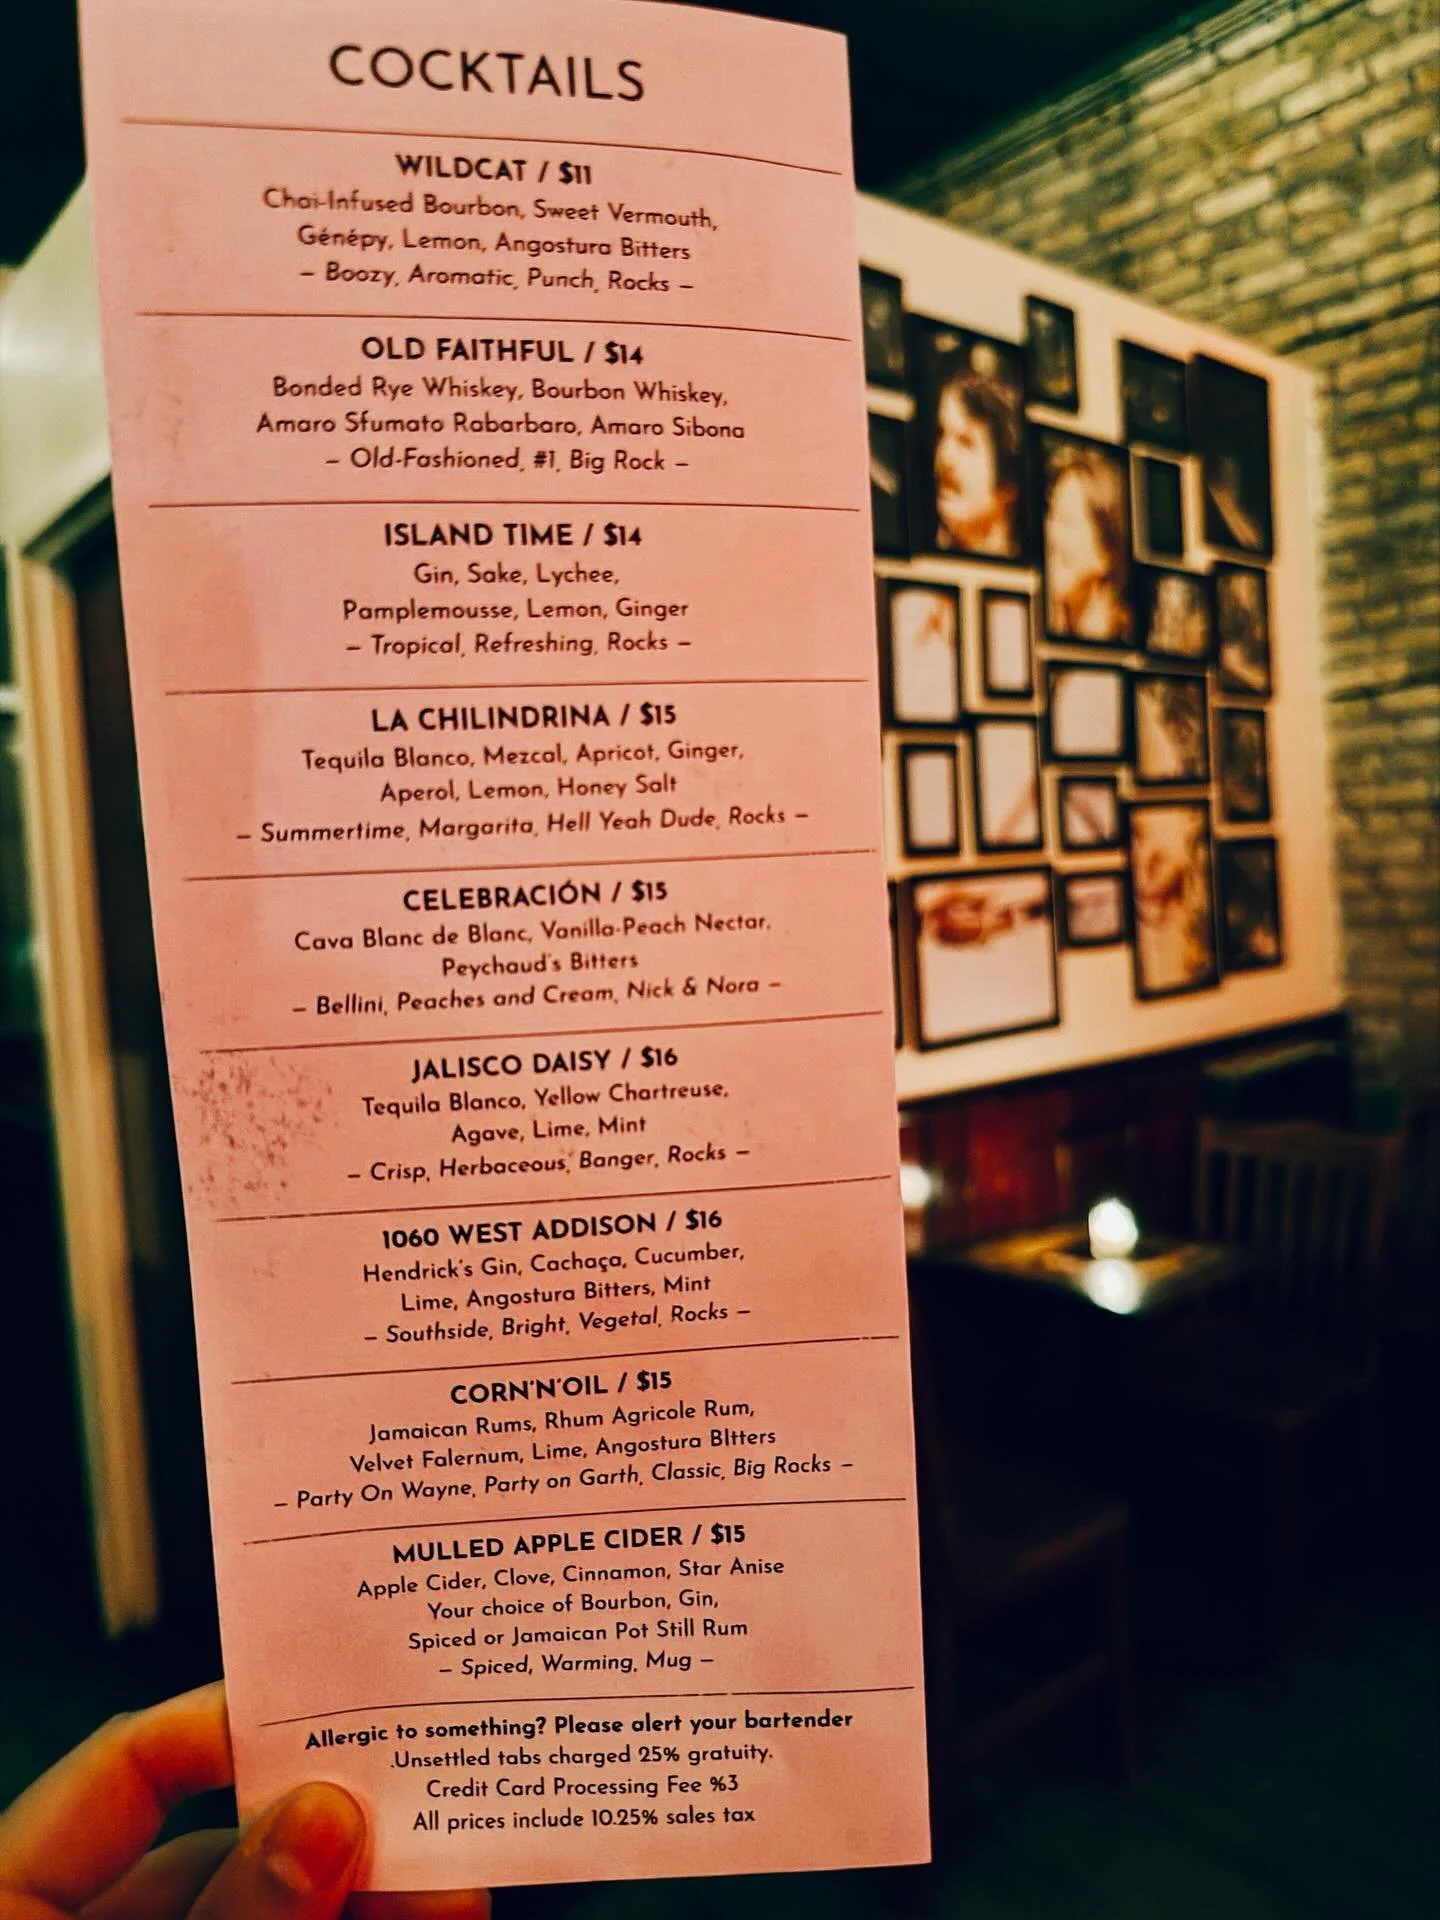 COCKTAILS
WILDCAT / $11
Chai-Infused Bourbon, Sweet Vermouth,
Génépy, Lemon, Angostura Bitters
– Boozy, Aromatic, Punch, Rocks –
OLD FAITHFUL / $14
Bonded Rye Whiskey, Bourbon Whiskey,
Amaro Sfumato Rabarbaro, Amaro Sibona
– Old-Fashioned, #1, Big Rock –
ISLAND TIME / $14
Gin, Sake, Lychee,
Pamplemousse, Lemon, Ginger
– Tropical, Refreshing, Rocks –
LA CHILINDRINA / $15
Tequila Blanco, Mezcal, Apricot, Ginger,
Aperol, Lemon, Honey Salt
– Summertime, Margarita, Hell Yeah Dude, Rocks –
CELEBRACIÓN / $15
Cava Blanc de Blanc, Vanilla-Peach Nectar,
Peychaud's Bitters
– Bellini, Peaches and Cream, Nick & Nora –
JALISCO DAISY / $16
Tequila Blanco, Yellow Chartreuse,
Agave, Lime, Mint
– Crisp, Herbaceous, Banger, Rocks –
1060 WEST ADDISON / $16
Hendrick's Gin, Cachaça, Cucumber,
Lime, Angostura Bitters, Mint
– Southside, Bright, Vegetal, Rocks –
CORN'N'OIL / $15
Jamaican Rums, Rhum Agricole Rum,
Velvet Falernum, Lime, Angostura BItters
– Party On Wayne, Party on Garth, Classic, Big Rocks –
MULLED APPLE CIDER / $15
Apple Cider, Clove, Cinnamon, Star Anise
Your choice of Bourbon, Gin,
Spiced or Jamaican Pot Still Rum
– Spiced, Warming, Mug –
Allergic to something? Please alert your bartender
.Unsettled tabs charged 25% gratuity.
Credit Card Processing Fee %3
All prices include 10.25% sales tax